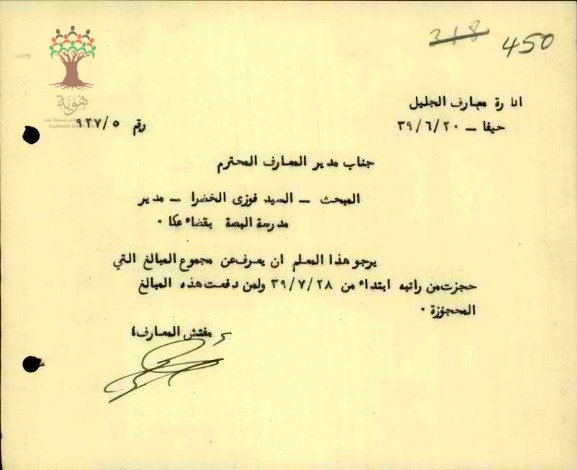 318
450
هوية
ادارة معارف الجليل
حيفا – ٣٩/٦/٢٠
رقم ٩٢٧/٥
جناب مدير المعارف المحترم
المبحث – السيد فوزى الخضرا – مدير
مدرسة البصة بقضاء عكا ٠
يرجو هذا المعلم ان يعرف عن مجموع المبالغ التي
حجزت من راتبه ابتداء من ٣٩/٧/٢٨ ولمن دفعت هذه المبالغ
المحجوزة ٠
مفتش المعارف